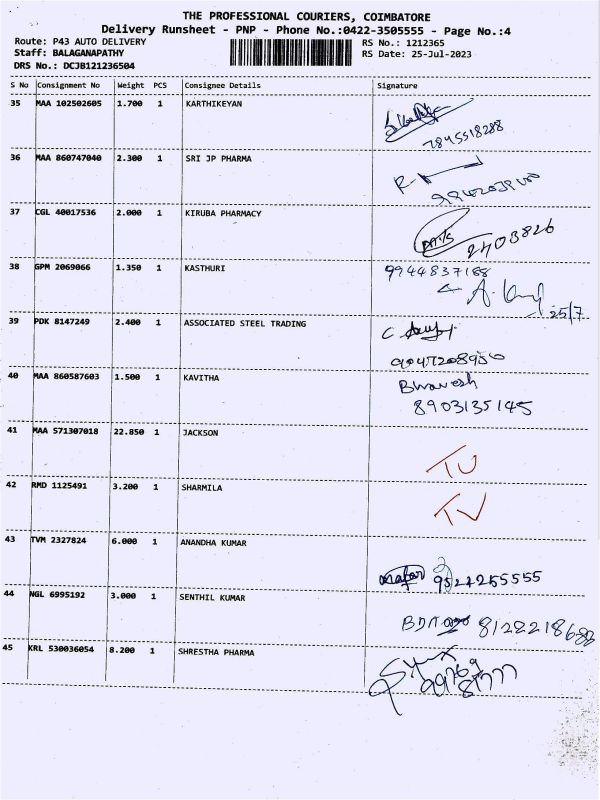 THE PROFESSIONAL COURIERS, COIMBATORE
Delivery Runsheet - PNP - Phone No.:0422-3505555 - Page No.:4
Route: P43 AUTO DELIVERY
RS No.: 1212365
Staff: BALAGANAPATHY
RS Date: 25-Jul-2023
DRS No.: DCJB121236504
S No Consignment No Weight PCS Consignee Details Signature
35 MAA 102502605 1.700 1 KARTHIKEYAN
7845518288
36 MAA 860747040 2.300 1 SRI JP PHARMA
37 CGL 40017536 2.000 1 KIRUBA PHARMACY
2403826
38 GPM 2069066 1.350 1 KASTHURI 9944837188
25/7
39 PDK 8147249 2.400 1 ASSOCIATED STEEL TRADING
9047208950
40 MAA 860587603 1.500 1 KAVITHA Bhavesh
8903135145
41 MAA 571307018 22.850 1 JACKSON
42 RMD 1125491 3.200 1 SHARMILA
43 TVM 2327824 6.000 1 ANANDHA KUMAR
44 NGL 6995192 3.000 1 SENTHIL KUMAR
45 KRL 530036054 8.200 1 SHRESTHA PHARMA